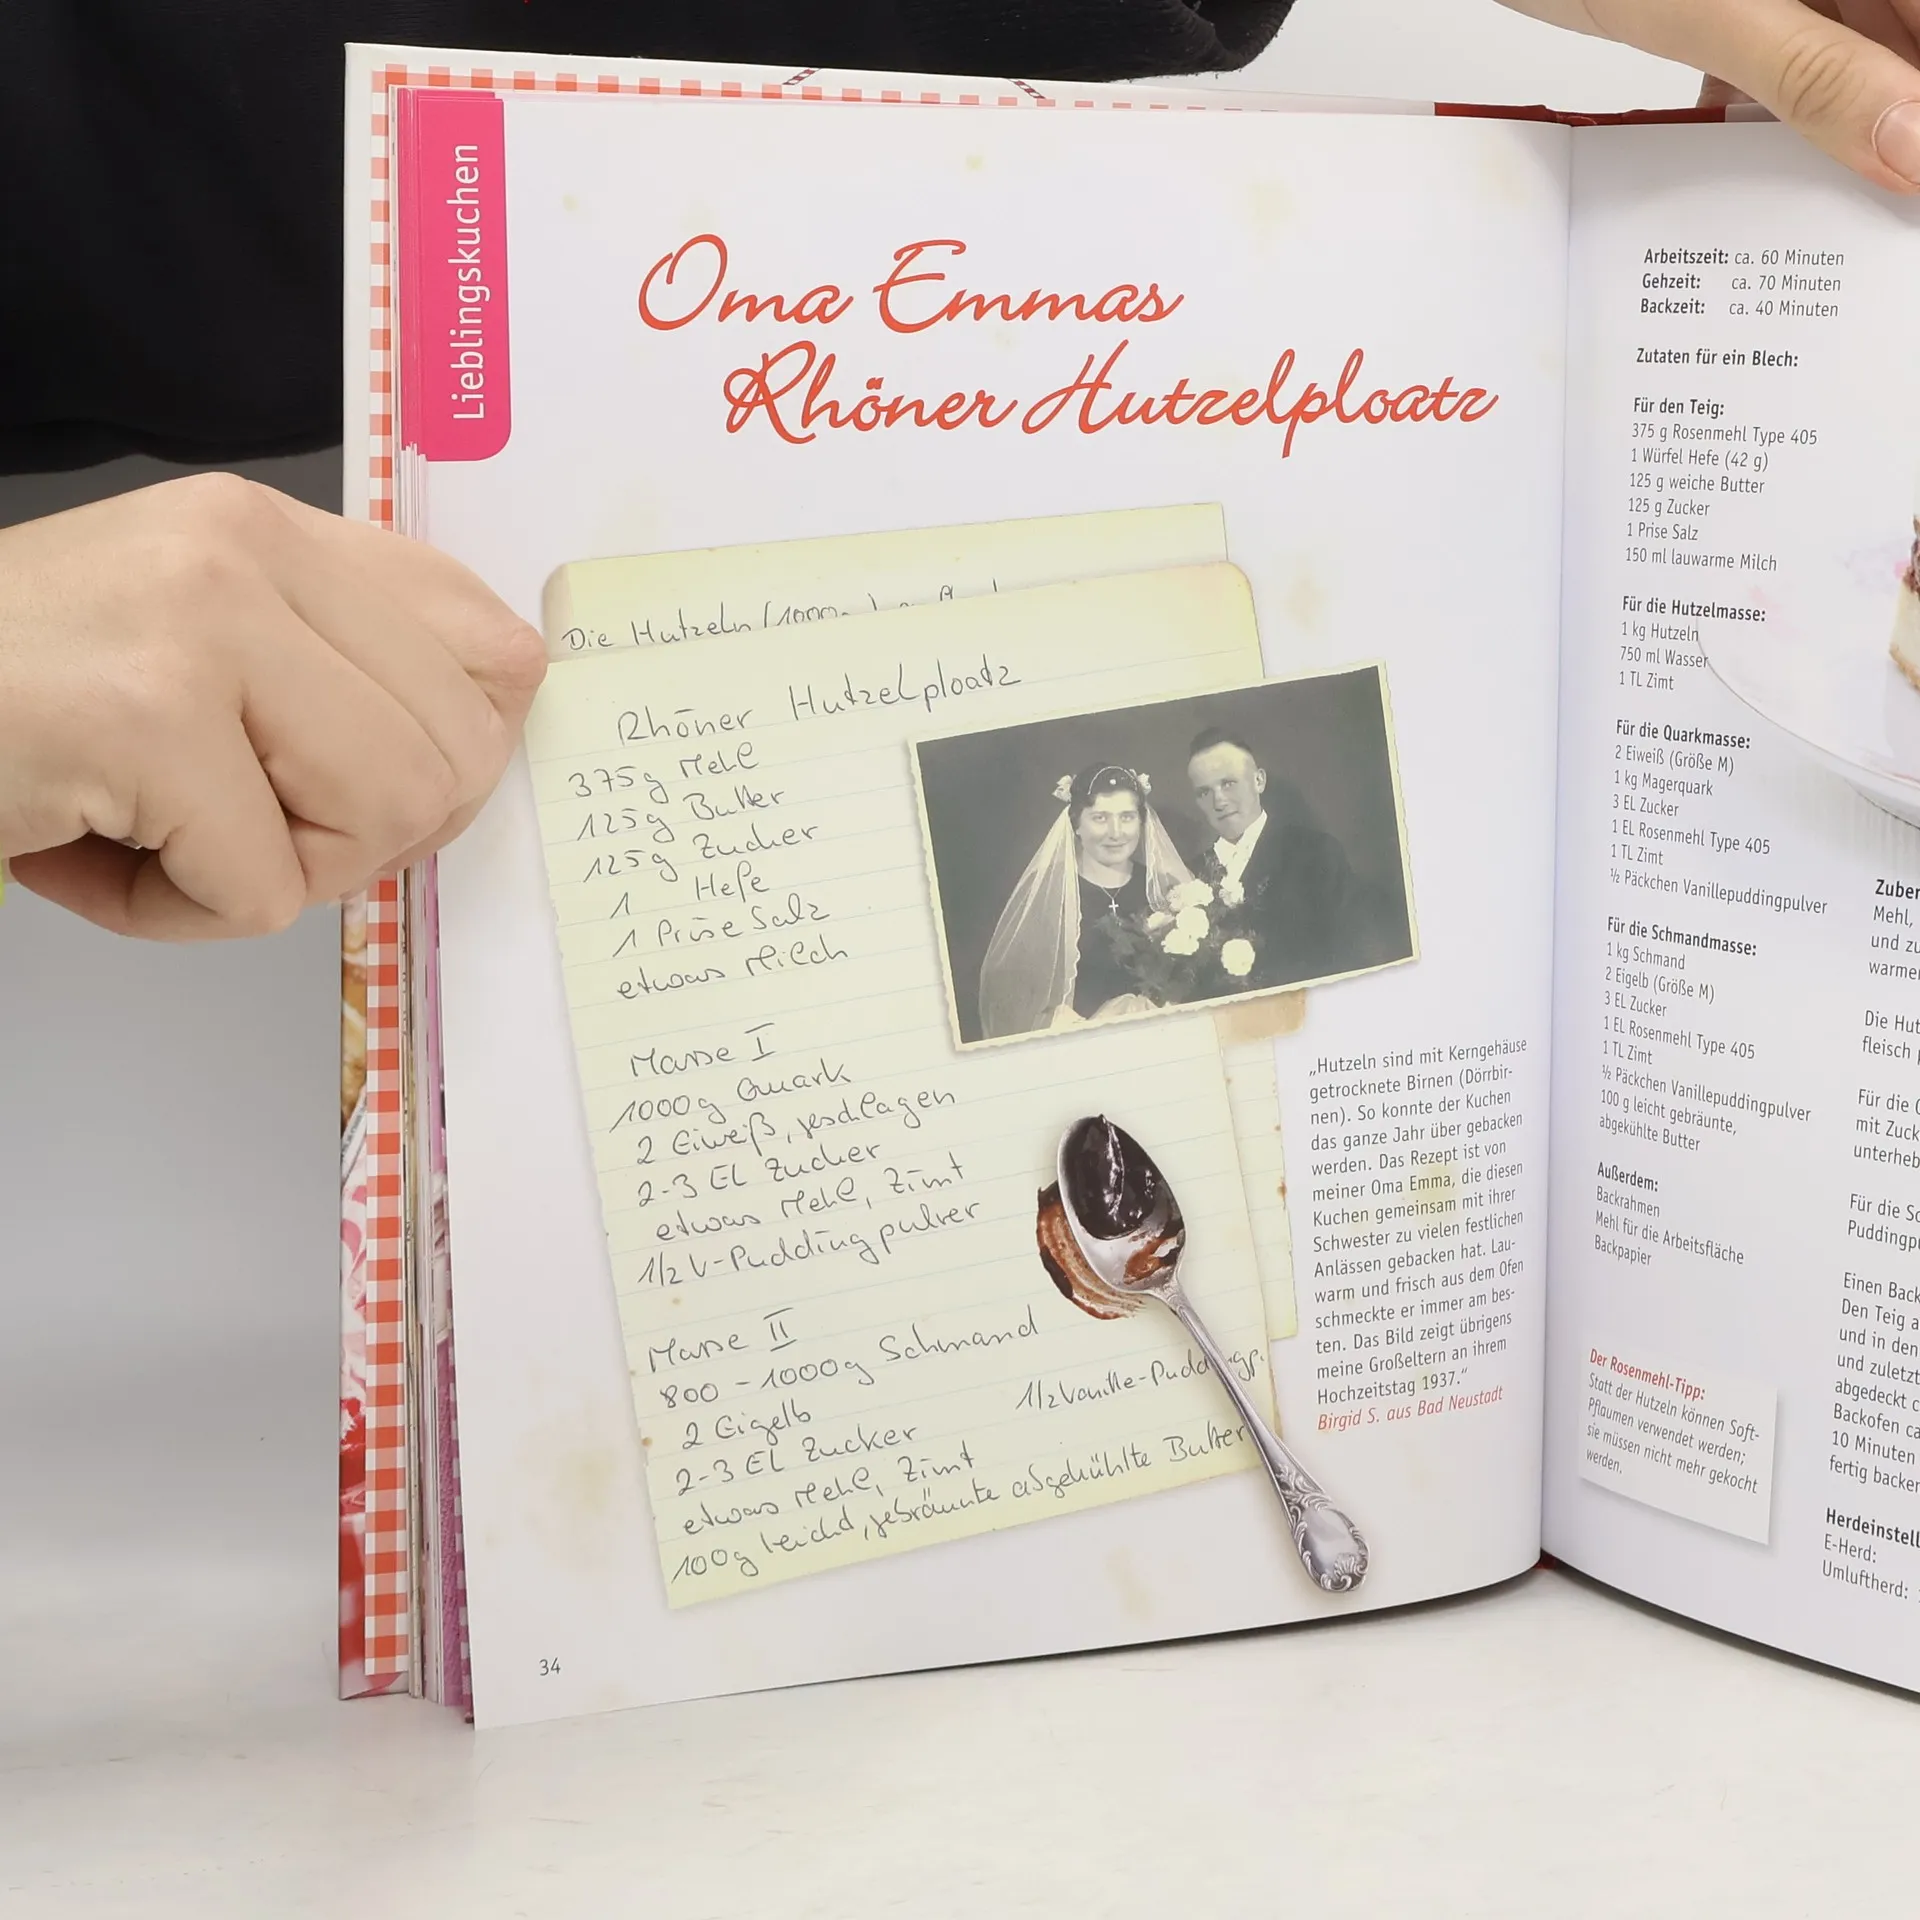 Lieblingskuchen
Oma Emmas
Rhöner Hutzelploatz
Die Hutzeln (1000
Rhöner Hutzelploatz
375g Mehl
125g Butter
125g Zucker
1 Hefe
1 Prise Salz
etwas Milch
Masse I
1000g Quark
2 Eiweiß, geschlagen
2-3 EL Zucker
etwas Mehl, Zimt
1/2 V-Puddingpulver
Masse II
800 - 1000g Schmand
2 Eigelb
1/2 Vanille-Puddingp.
2-3 EL Zucker
etwas Mehl, Zimt
100g leicht, gebräunte abgekühlte Butter
„Hutzeln sind mit Kerngehäuse
getrocknete Birnen (Dörrbir-
nen). So konnte der Kuchen
das ganze Jahr über gebacken
werden. Das Rezept ist von
meiner Oma Emma, die diesen
Kuchen gemeinsam mit ihrer
Schwester zu vielen festlichen
Anlässen gebacken hat. Lau-
warm und frisch aus dem Ofen
schmeckte er immer am bes-
ten. Das Bild zeigt übrigens
meine Großeltern an ihrem
Hochzeitstag 1937.“
Birgid S. aus Bad Neustadt
34
Arbeitszeit: ca. 60 Minuten
Gehzeit: ca. 70 Minuten
Backzeit: ca. 40 Minuten
Zutaten für ein Blech:
Für den Teig:
375 g Rosenmehl Type 405
1 Würfel Hefe (42 g)
125 g weiche Butter
125 g Zucker
1 Prise Salz
150 ml lauwarme Milch
Für die Hutzelmasse:
1 kg Hutzeln
750 ml Wasser
1 TL Zimt
Für die Quarkmasse:
2 Eiweiß (Größe M)
1 kg Magerquark
3 EL Zucker
1 EL Rosenmehl Type 405
1 TL Zimt
½ Päckchen Vanillepuddingpulver
Für die Schmandmasse:
1 kg Schmand
2 Eigelb (Größe M)
3 EL Zucker
1 EL Rosenmehl Type 405
1 TL Zimt
½ Päckchen Vanillepuddingpulver
100 g leicht gebräunte,
abgekühlte Butter
Außerdem:
Backrahmen
Mehl für die Arbeitsfläche
Backpapier
Der Rosenmehl-Tipp:
Statt der Hutzeln können Soft-
Pflaumen verwendet werden;
sie müssen nicht mehr gekocht
werden.
Zuber
Mehl,
und zu
warme
Die Hut
fleisch
Für die
mit Zuck
unterheb
Für die Sc
Puddingpu
Einen Back
Den Teig a
und in den
und zuletzt
abgedeckt
Backofen ca
10 Minuten
fertig backen
Herdeinstell
E-Herd:
Umluftherd: